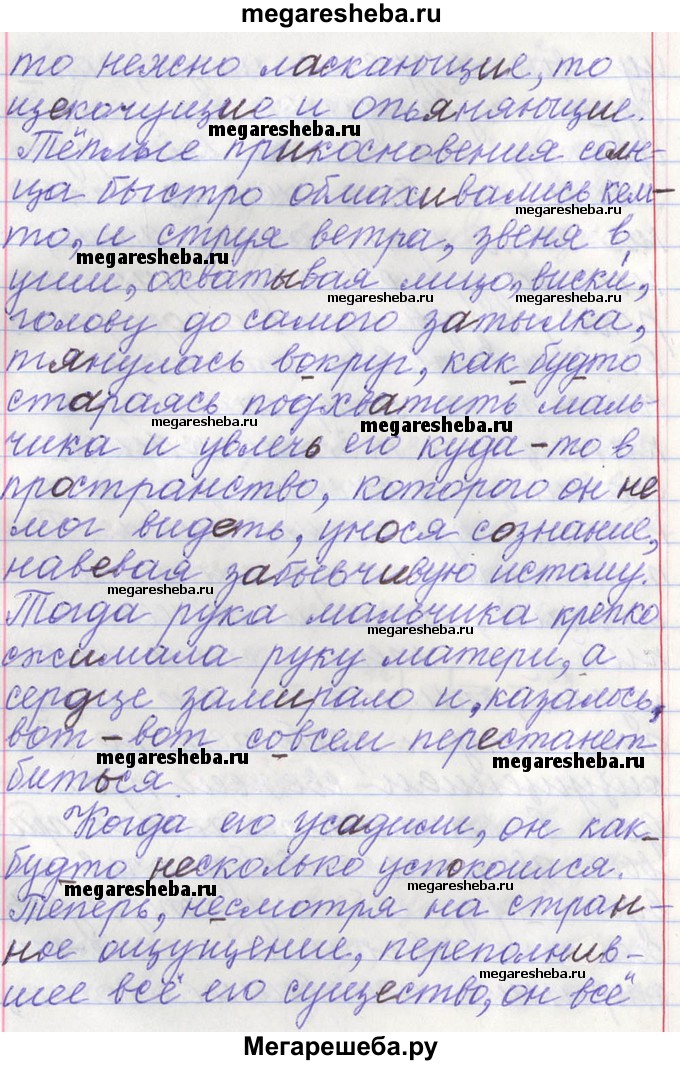 megaresheba.ru
то нежно ласкающие, то
щекочущие и опьяняющие.
megaresheba.ru
Тёплые прикосновения солн-
ца быстро обмахивались кем-
megaresheba.ru
то, и струя ветра, звеня в
megaresheba.ru
уши, охватывая лицо, виски,
megaresheba.ru
megaresheba.ru
голову до самого затылка,
тянулась вокруг, как будто
стараясь подхватить маль-
megaresheba.ru
megaresheba.ru
чика и увлечь его куда-то в
пространство, которого он не
мог видеть, унося сознание,
навевая забывчивую истому.
megaresheba.ru
Тогда рука мальчика крепко
megaresheba.ru
сжимала руку матери, а
сердце замирало и, казалось,
вот-вот совсем перестанет
megaresheba.ru
megaresheba.ru
биться.
Когда его усадили, он как
будто несколько успокоился.
megaresheba.ru
megaresheba.ru
Теперь, несмотря на стран-
ное ощущение, переполнив-
megaresheba.ru
шее всё его существо, он всё
Мегарешеба.ру